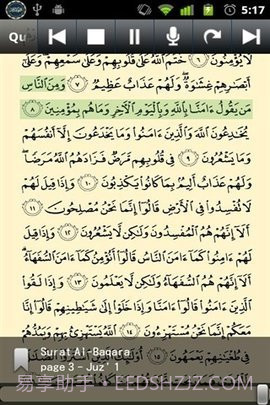 5:17
Qu
لَا يُؤْمِنُونَ ٦ خَتَمَ ٱللَّهُ عَلَىٰ قُلُوبِهِمْ وَعَلَىٰ سَمْعِهِمْ وَعَلَىٰ
أَبْصَٰرِهِمْ غِشَٰوَةٌ وَلَهُمْ عَذَابٌ عَظِيمٌ ٧ وَمِنَ ٱلنَّاسِ
مَن يَقُولُ ءَامَنَّا بِٱللَّهِ وَبِٱلْيَوْمِ ٱلْءَاخِرِ وَمَا هُم بِمُؤْمِنِينَ ٨
يُخَٰدِعُونَ ٱللَّهَ وَٱلَّذِينَ ءَامَنُوا۟ وَمَا يَخْدَعُونَ إِلَّآ أَنفُسَهُمْ
وَمَا يَشْعُرُونَ ٩ فِى قُلُوبِهِم مَّرَضٌ فَزَادَهُمُ ٱللَّهُ مَرَضًا
وَلَهُمْ عَذَابٌ أَلِيمٌۢ بِمَا كَانُوا۟ يَكْذِبُونَ ١٠ وَإِذَا قِيلَ لَهُمْ
لَا تُفْسِدُوا۟ فِى ٱلْأَرْضِ قَالُوٓا۟ إِنَّمَا نَحْنُ مُصْلِحُونَ ١١
أَلَآ إِنَّهُمْ هُمُ ٱلْمُفْسِدُونَ وَلَٰكِن لَّا يَشْعُرُونَ ١٢ وَإِذَا قِيلَ
لَهُمْ ءَامِنُوا۟ كَمَآ ءَامَنَ ٱلنَّاسُ قَالُوٓا۟ أَنُؤْمِنُ كَمَآ ءَامَنَ ٱلسُّفَهَآءُ
أَلَآ إِنَّهُمْ هُمُ ٱلسُّفَهَآءُ وَلَٰكِن لَّا يَعْلَمُونَ ١٣ وَإِذَا لَقُوا۟
ٱلَّذِينَ ءَامَنُوا۟ قَالُوٓا۟ ءَامَنَّا وَإِذَا خَلَوْا۟ إِلَىٰ شَيَٰطِينِهِمْ قَالُوٓا۟ إِنَّا
مَعَكُمْ إِنَّمَا نَحْنُ مُسْتَهْزِءُونَ ١٤ ٱللَّهُ يَسْتَهْزِئُ بِهِمْ وَيَمُدُّهُمْ
فِى طُغْيَٰنِهِمْ يَعْمَهُونَ ١٥
Surat Al-Baqara
page 3 - Juz' 1
易享助手 - EEDSHZJZ.COM